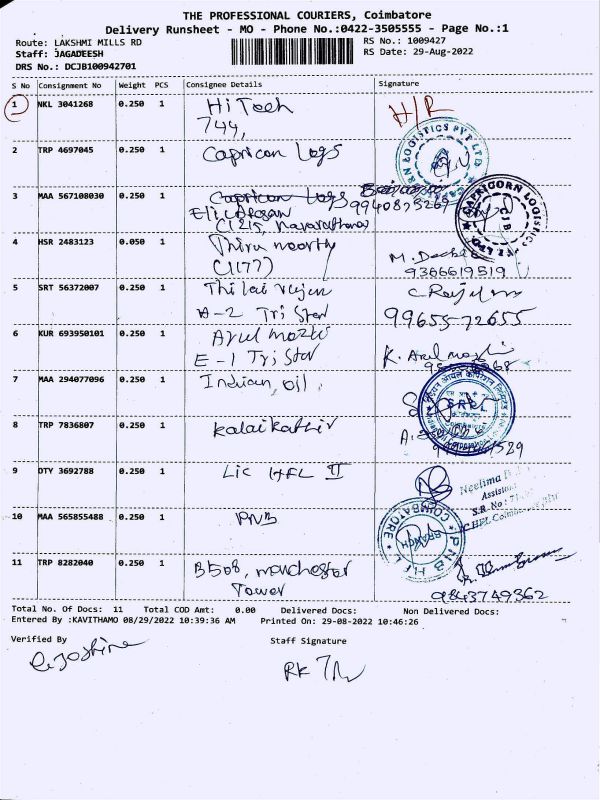 THE PROFESSIONAL COURIERS, Coimbatore
Delivery Runsheet - MO - Phone No.:0422-3505555 - Page No.:1
Route: LAKSHMI MILLS RD
RS No.: 1009427
Staff: JAGADEESH
RS Date: 29-Aug-2022
DRS No.: DCJB100942701
S No Consignment No Weight PCS Consignee Details Signature
1 NKL 3041268 0.250 1 Hi Tech H/R
744,
2 TRP 4697045 0.250 1 Capricon Logs
3 MAA 567108030 0.250 1 Capricon Logs
9940875269
C1215, Navarathna
CAPRICORN LOGISTICS PVT LTD. CJB
4 HSR 2483123 0.050 1 Thiru moorthy
C1177) 9366619519
5 SRT 56372007 0.250 1 Thilai
A-2 Tri Star 99655-72655
6 KUR 693950101 0.250 1 Arul mozhi K. Arul mozhi
E-1 Tri Star
7 MAA 294077096 0.250 1 Indian oil.
8 TRP 7836807 0.250 1 Kalaikathir
9 DTY 3692788 0.250 1 LIC HFL II
Neelima
Assistant
S.R. No :
10 MAA 565855488 0.250 1 PNB
PNB HFL COIMBATORE BRANCH
11 TRP 8282040 0.250 1 B508, manchester
Tower 9843749362
Total No. Of Docs: 11 Total COD Amt: 0.00 Delivered Docs: Non Delivered Docs:
Entered By :KAVITHAMO 08/29/2022 10:39:36 AM Printed On: 29-08-2022 10:46:26
Verified By Staff Signature